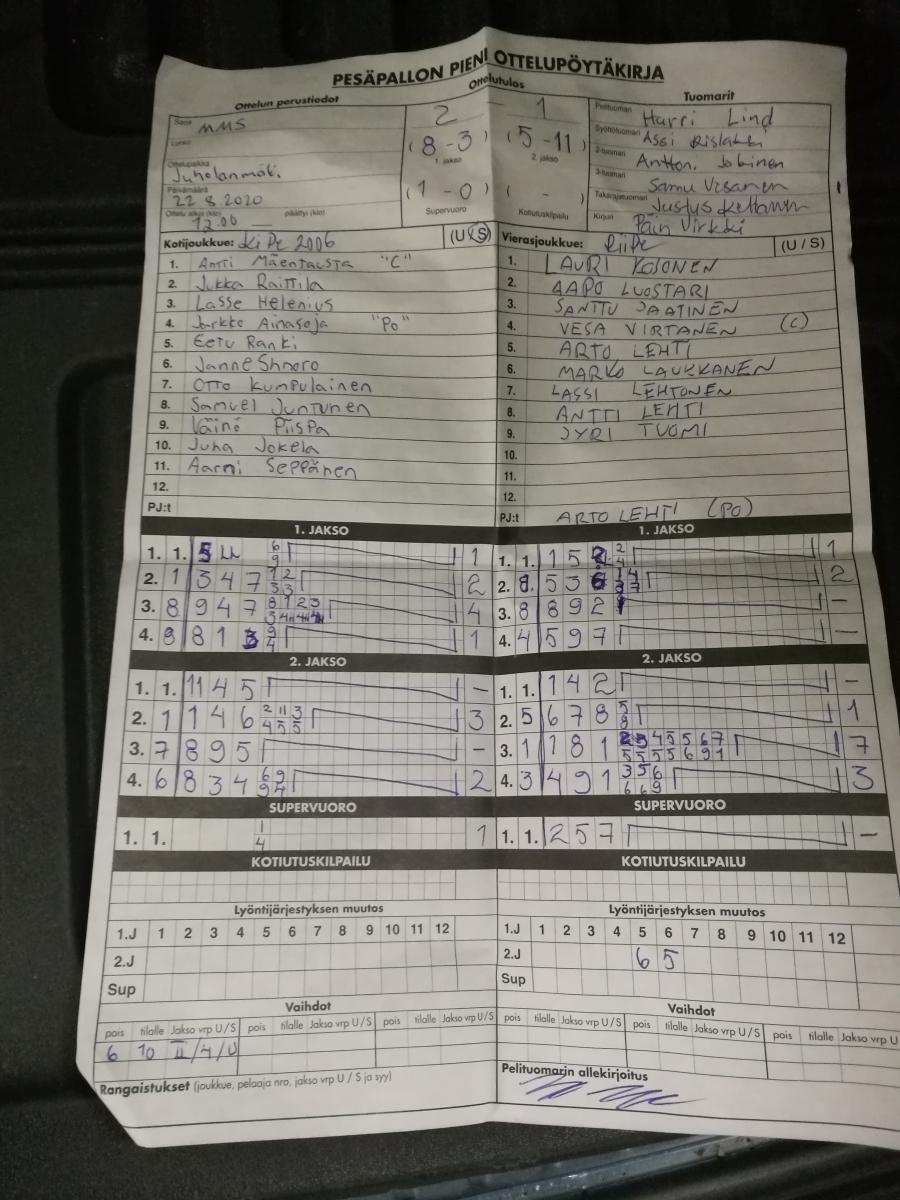 PESÄPALLON PIENI OTTELUPÖYTÄKIRJA
Ottelun perustiedot
Ottelutulos
Tuomarit
Sarja MMS
Lohko
Ottelupaikka Juholanmäki
Päivämäärä 22.8.2020
Ottelu alkoi (klo) 12.00 päättyi (klo)
2 - 1
(8-3) (5-11)
1. jakso 2. jakso
(1-0) ( - )
Supervuoro Kotiutuskilpailu
Pelituomari Harri Lind
Syöttötuomari Assi
2-tuomari Antton Jokinen
3-tuomari Samu
Takarajatuomari Justus
Kirjuri Päin Virkki
Kotijoukkue: KiPe 2006 (U/S)
1. Antti Mäentausta "C"
2. Jukka Raittila
3. Lasse Helenius
4. Jarkko Ainasoja "Po"
5. Eetu Ranki
6. Janne
7. Otto Kumpulainen
8. Samuel Juntunen
9. Väinö Piispa
10. Juha Jokela
11. Aarni Seppänen
12.
PJ:t
Vierasjoukkue: RiiPe (U / S)
1. LAURI KOSONEN
2. AAPO LUOSTARI
3. SANTTU JAATINEN
4. VESA VIRTANEN (C)
5. ARTO LEHTI
6. MARKO LAUKKANEN
7. LASSI LEHTONEN
8. ANTTI LEHTI
9. JYRI TUOMI
10.
11.
12.
PJ:t ARTO LEHTI (PO)
1. JAKSO
1. 1. 5 6 9 1
2. 1 3 4 7 1 2 3 3 2
3. 8 9 4 7 8 1 2 3 3 4 4 4 4
4. 8 8 1 3 9 4 1
2. JAKSO
1. 1. 11 4 5 -
2. 1 1 4 6 2 11 3 4 5 5 3
3. 7 8 9 5 -
4. 6 8 3 4 6 9 9 4 2
SUPERVUORO
1. 1. 1 4 1
KOTIUTUSKILPAILU
1. JAKSO
1. 1. 1 5 2 2 4 1
2. 8. 5 3 6 1 4 3 7 2
3. 8 8 9 2 -
4. 4 5 9 7 -
2. JAKSO
1. 1. 1 4 2 -
2. 5 6 7 8 5 8 1
3. 1 1 8 1 2 3 4 5 5 6 7 5 5 5 5 6 9 1 7
4. 3 4 9 1 3 5 6 6 6 9 3
SUPERVUORO
1. 1. 2 5 7 -
KOTIUTUSKILPAILU
Lyöntijärjestyksen muutos
1.J 1 2 3 4 5 6 7 8 9 10 11 12
2.J
Sup
Lyöntijärjestyksen muutos
1.J 1 2 3 4 5 6 7 8 9 10 11 12
2.J 6 5
Sup
Vaihdot
pois tilalle Jakso vrp U/S pois tilalle Jakso vrp U/S pois tilalle Jakso vrp U/S
6 10 II/4/U
Vaihdot
pois tilalle Jakso vrp U/S pois tilalle Jakso vrp U/S pois tilalle Jakso vrp U
Rangaistukset (joukkue, pelaaja nro, jakso vrp U / S ja syy)
Pelituomarin allekirjoitus